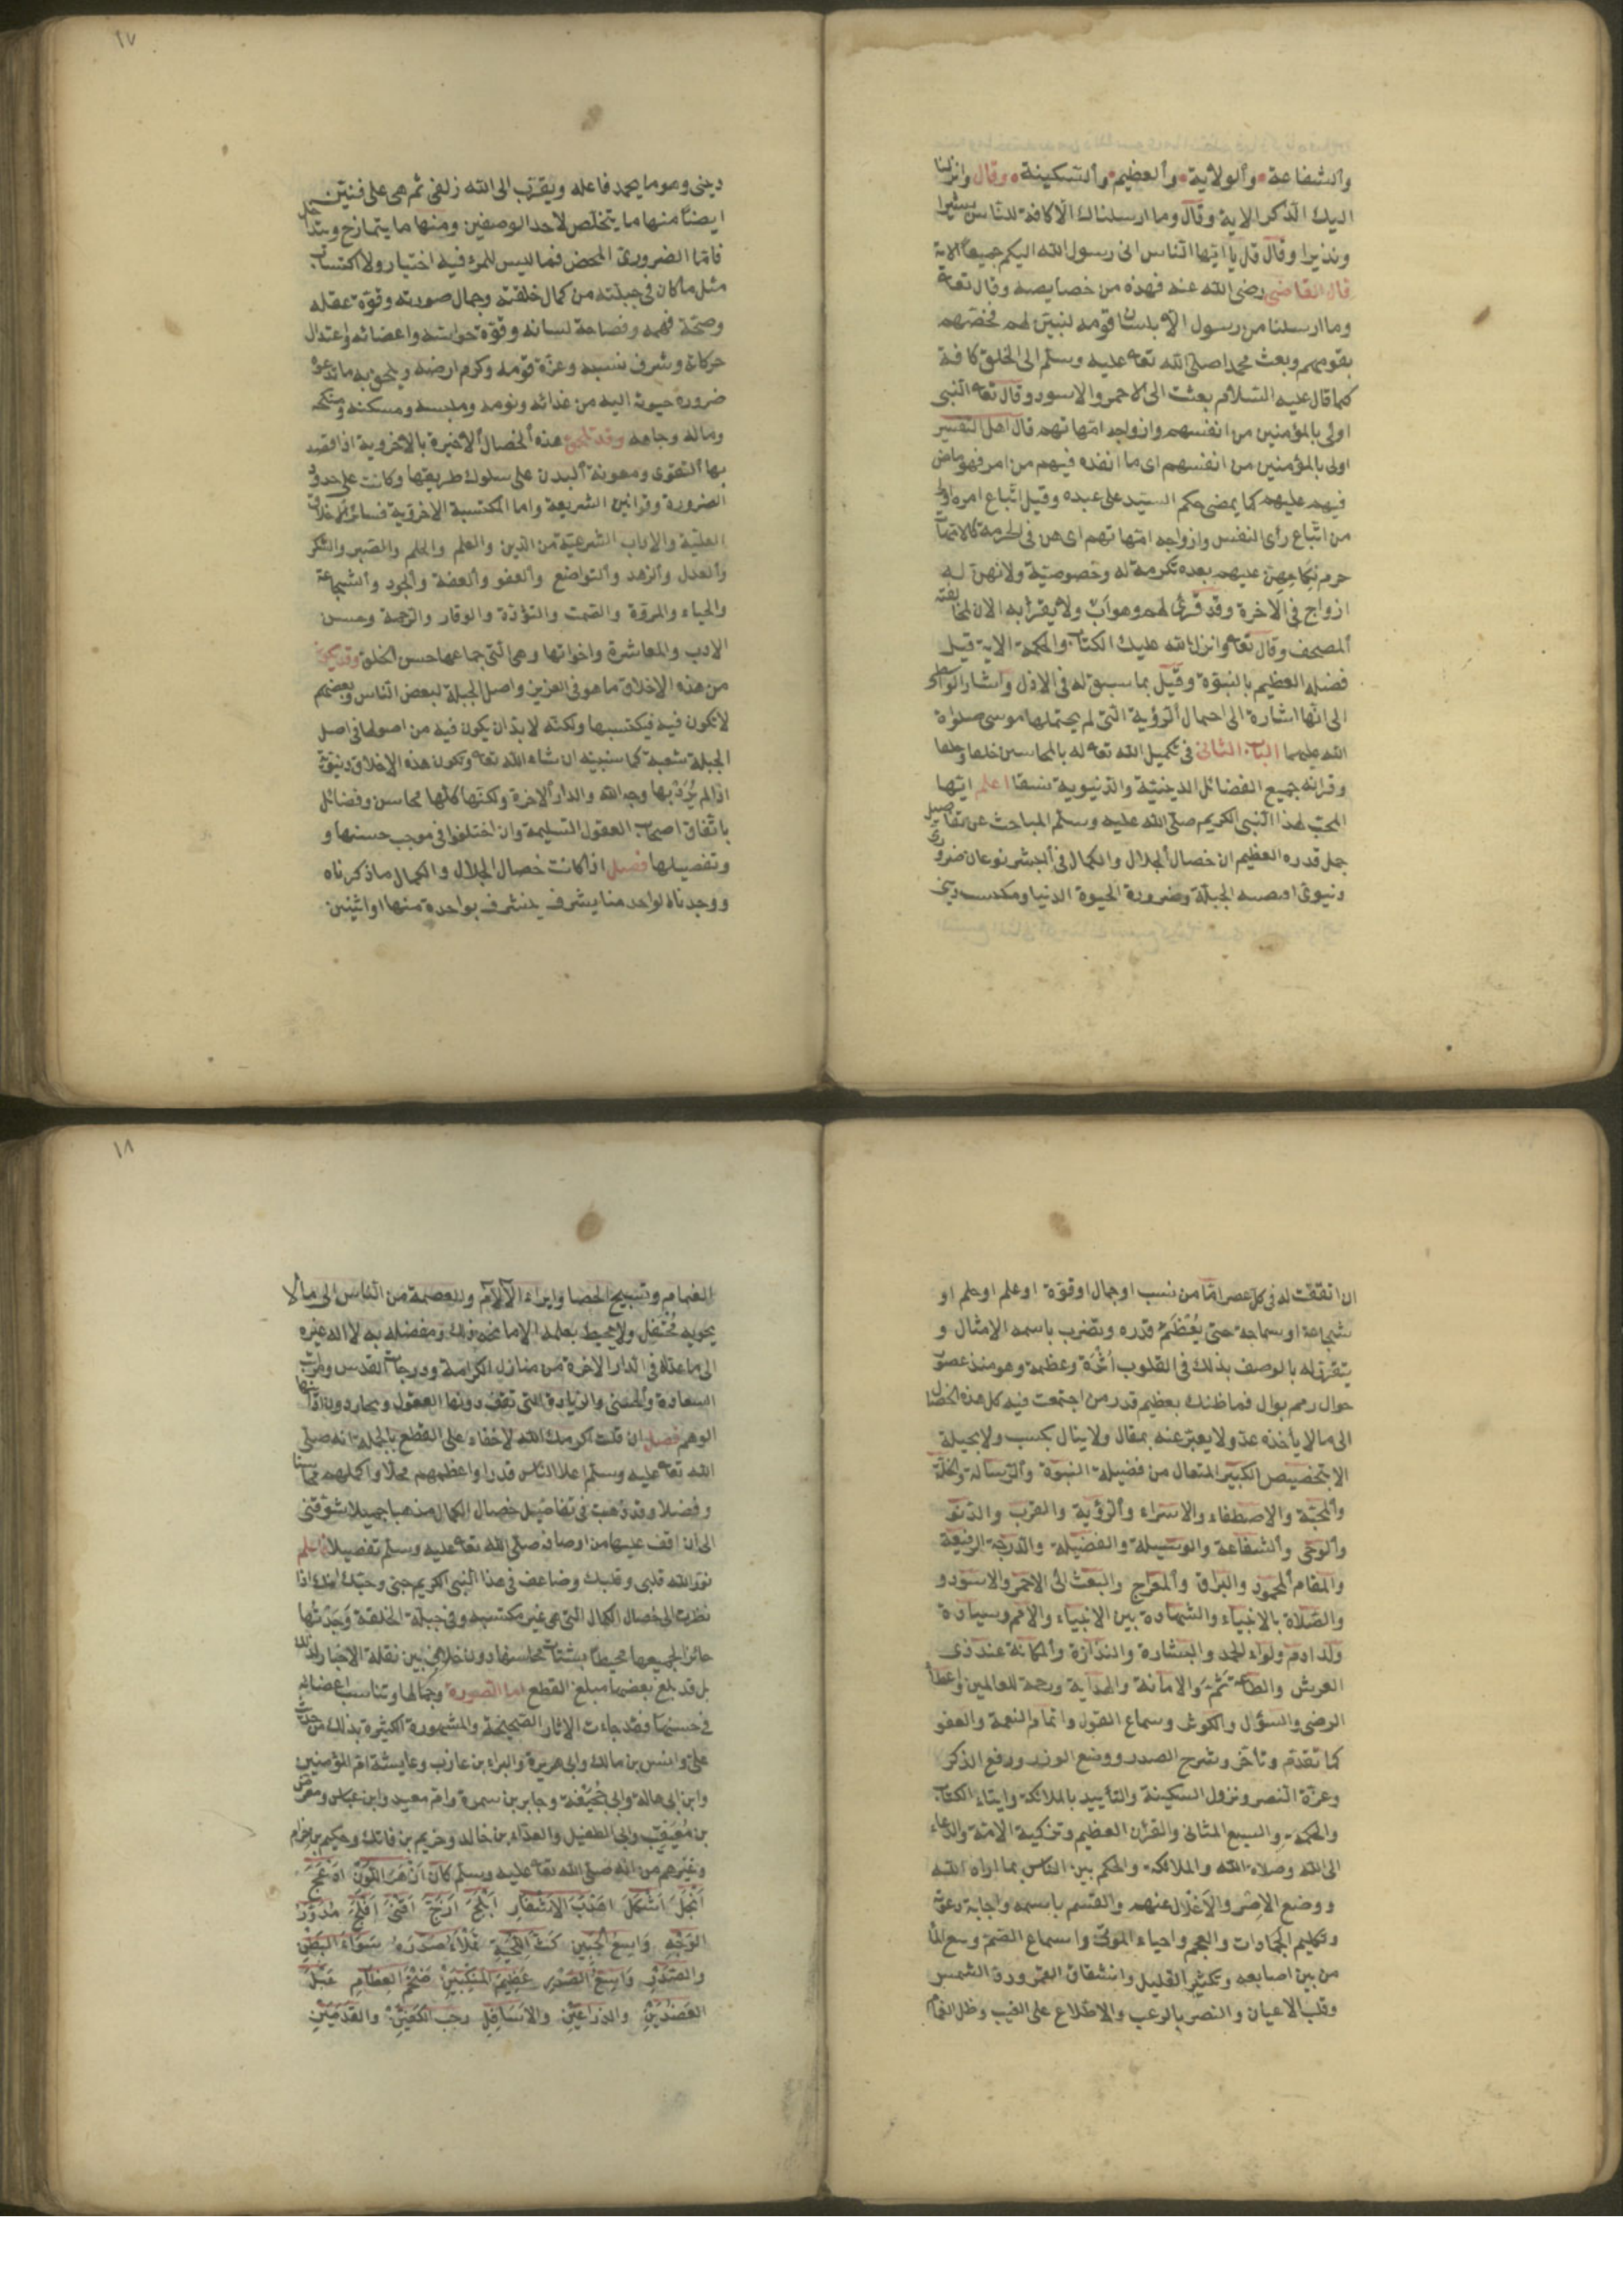 والشفاعة والولاية والعظيم والسكينة وقال وانزلنا
اليك الذكر الاية وقال وما ارسلناك الا كافة للناس بشيرا
ونذيرا وقال قل يا ايها الناس انى رسول الله اليكم جميعا الاية
قال القاضى رضى الله عنه فهذه من خصايصه وقال تعا
وما ارسلنا من رسول الا بلسان قومه لنبين لهم فخصهم
بقومهم وبعث محمدا صلى الله تعا عليه وسلم الى الخلق كافة
كما قال عليه السلام بعثت الى الاحمر والاسود وقال تعا النبى
اولى بالمؤمنين من انفسهم وازواجه امهاتهم قال اهل التفسير
اولى بالمؤمنين من انفسهم اى ما انفذه فيهم من امر فهو ماض
فيهم عليهم كما يمضى حكم السيد على عبده وقيل اتباع امره اولى
من اتباع رأى النفس وازواجه امهاتهم اى هن فى الحرمة كالامهات
حرم نكاحهن عليهم بعده تكرمة له وخصوصية ولانهن له
ازواج فى الاخرة وقد قرئ لهم وهو اب ولا يقرأ به الان لمخالفته
المصحف وقال تعا وانزل الله عليك الكتاب والحكمة الاية قيل
فضله العظيم بالنبوة وقيل بما سبق له فى الازل واشار الواسطى
الى انها اشارة الى احتمال الرؤية التى لم يحتملها موسى صلواة
الله عليهما الباب الثانى فى تكميل الله تعا له بالمحاسن خلقا وخلقا
وقرانه جميع الفضائل الدينية والدنيوية نسقا اعلم ايها
المحب لهذا النبى الكريم صلى الله عليه وسلم المباحث عن تفاصيل
جمل قدره العظيم ان خصال الجلال والكمال فى البشر نوعان ضرورى
دنيوى اقتضته الجبلة وضرورة الحيوة الدنيا ومكتسب دينى
١٧
دينى وهو ما يحمد فاعله ويقرب الى الله زلفى ثم هى على فنين
ايضا منها ما يتخلص لاحد الوصفين ومنها ما يتمازج ويتداخل
فاما الضرورى المحض فما ليس للمرء فيه اختيار ولا اكتساب
مثل ما كان فى جبلته من كمال خلقته وجمال صورته وقوة عقله
وصحة فهمه وفصاحة لسانه وقوة حواسه واعضائه واعتدال
حركاته وشرف نسبه وعزة قومه وكرم ارضه ويلحق به ما تدعو
ضرورة حيوته اليه من غذائه ونومه وملبسه ومسكنه ومنكحه
وماله وجاهه وقد تلحق هذه الخصال الاخيرة بالاخروية اذا قصد
بها التقوى ومعونة البدن على سلوك طريقها وكانت على حدود
الضرورة وقوانين الشريعة واما المكتسبة الاخروية فسائر الاخلاق
العلية والاداب الشرعية من الدين والعلم والحلم والصبر والشكر
والعدل والزهد والتواضع والعفو والعفة والجود والشجاعة
والحياء والمروة والصمت والتؤدة والوقار والرحمة وحسن
الادب والمعاشرة واخواتها وهى التى جماعها حسن الخلق وقد يكون
من هذه الاخلاق ما هو فى الغريزة واصل الجبلة لبعض الناس وبعضهم
لا تكون فيه فيكتسبها ولكنه لا بد ان يكون فيه من اصولها فى اصل
الجبلة شعبة كما سنبينه ان شاء الله تعا وتكون هذه الاخلاق دنيوية
اذا لم يُرَدْ بها وجه الله والدار الاخرة ولكنها كلها محاسن وفضائل
باتفاق اصحاب العقول السليمة وان اختلفوا فى موجب حسنها و
وتفصيلها فصل اذا كانت خصال الجلال والكمال ما ذكرناه
ووجدنا الواحد منا يشرف يتشرف بواحدة منها او اثنين
ان اتفقت له فى كل عصر اما من نسب او جمال او قوة او علم او حلم او
شجاعة او سماحة حتى يُعْظَمَ قدره ويضرب باسمه الامثال و
يتقرر له بالوصف بذلك فى القلوب أثْرَة وعظمة وهو منذ عصور
خوال رمم بوال فما ظنك بعظيم قدر من اجتمعت فيه كل هذه الخصال
الى ما لا يأخذه عد ولا يعبر عنه مقال ولا ينال بكسب ولا بحيلة
الا بتخصيص الكبير المتعال من فضيلة النبوة والرسالة والخلة
والمحبة والاصطفاء والاسراء والرؤية والقرب والدنو
والوحى والشفاعة والوسيلة والفضيلة والدرجة الرفيعة
والمقام المحمود والبراق والمعراج والبعث الى الاحمر والاسود و
والصلاة بالانبياء والشهادة بين الانبياء والامم وسيادة
ولد ادم ولواء الحمد والبشارة والنذارة والمكانة عند ذى
العرش والطاعة ثَمَّ والامانة والهداية ورحمة للعالمين واعطا
الرضى والسؤال والكوثر وسماع القول واتمام النعمة والعفو
كما تقدم وتأخر وشرح الصدر ووضع الوزر ورفع الذكر
وعزة النصر ونزول السكينة والتأييد بالملائكة وايتاء الكتاب
والحكمة والسبع المثانى والقرأن العظيم وتزكية الامة والدعاء
الى الله وصلاة الله والملائكة والحكم بين الناس بما اراه الله
ووضع الاصر والاغلال عنهم والقسم باسمه واجابة دعوته
وتكليم الجمادات والعجم واحياء الموتى واسماع الصم ونبع الماء
من بين اصابعه وتكثير القليل وانشقاق القمر ورد الشمس
وقلب الاعيان والنصر بالرعب والاطلاع على الغيب وظل الغمام
١٨
الغمام وتسبيح الحصا وابراء الالام والعصمة من الناس الى ما لا
يحويه مُحْتفل ولا يحيط بعلمه الا مانحه ذلك ومفضله به لا اله غيره
الى ما اعد له فى الدار الاخرة من منازل الكرامة ودرجات القدس ومراتب
السعادة والحسنى والزيادة التى تقف دونها العقول ويحار دون ادانيها
الوهم فصل ان قلت اكرمك الله لا خفاء على القطع بالجملة انه صلى
الله تعا عليه وسلم اعلا الناس قدرا واعظمهم محلا واكملهم محاسنا
وفضلا وقد ذهبت فى تفاصيل خصال الكمال مذهبا جميلا شوقنى
الى ان اقف عليها من اوصافه صلى الله تعا عليه وسلم تفصيلا فاعلم
نور الله قلبى وقلبك وضاعف فى هذا النبى الكريم حبى وحبك انك اذا
نظرت الى خصال الكمال التى هى غير مكتسبة وفى جبلة الخلقة وَجَدْتَها
حائزا لجميعها محيطا بشتات محاسنها دون خلاف بين نقلة الاخبار لذلك
بل قد بلغ بعضها مبلغ القطع اما الصورة وجمالها وتناسب اعضائه
فى حسنها فقد جاءت الاثار الصحيحة والمشهورة الكثيرة بذلك من حديث
على وانس بن مالك وابى هريرة والبراء بن عازب وعايشة ام المؤمنين
وابن ابى هالة وابى جُحَيْفَة وجابر بن سمرة وام معبد وابن عباس ومعرض
بن مُعَيْقِب وابى الطفيل والعداء بن خالد وخريم بن فاتك وحكيم بن حزام
وغيرهم من انه صلى الله تعا عليه وسلم كان اَزْهَرَ اللَّوْنِ اَدْعَجَ
اَنْجَلَ اَشْكَلَ اَهْدَبَ الاَشْفَارِ اَبْلَجَ اَزَجَّ اَقْنَى اَفْلَجَ مُدَوَّرَ
الوَجْهِ وَاسِعَ الجَبِينِ كَثَّ اللِّحْيَةِ تَمْلَأُ صَدْرَهُ سَوَاءَ البَطْنِ
والصَّدْرِ وَاسِعَ الصَّدْرِ عَظِيمَ المَنْكِبَيْنِ ضَخْمَ العِظَامِ عَبْلَ
العَضُدَيْنِ والذِّرَاعَيْنِ والاَسَافِلِ رحب الكَفَّيْنِ والقَدَمَيْنِ